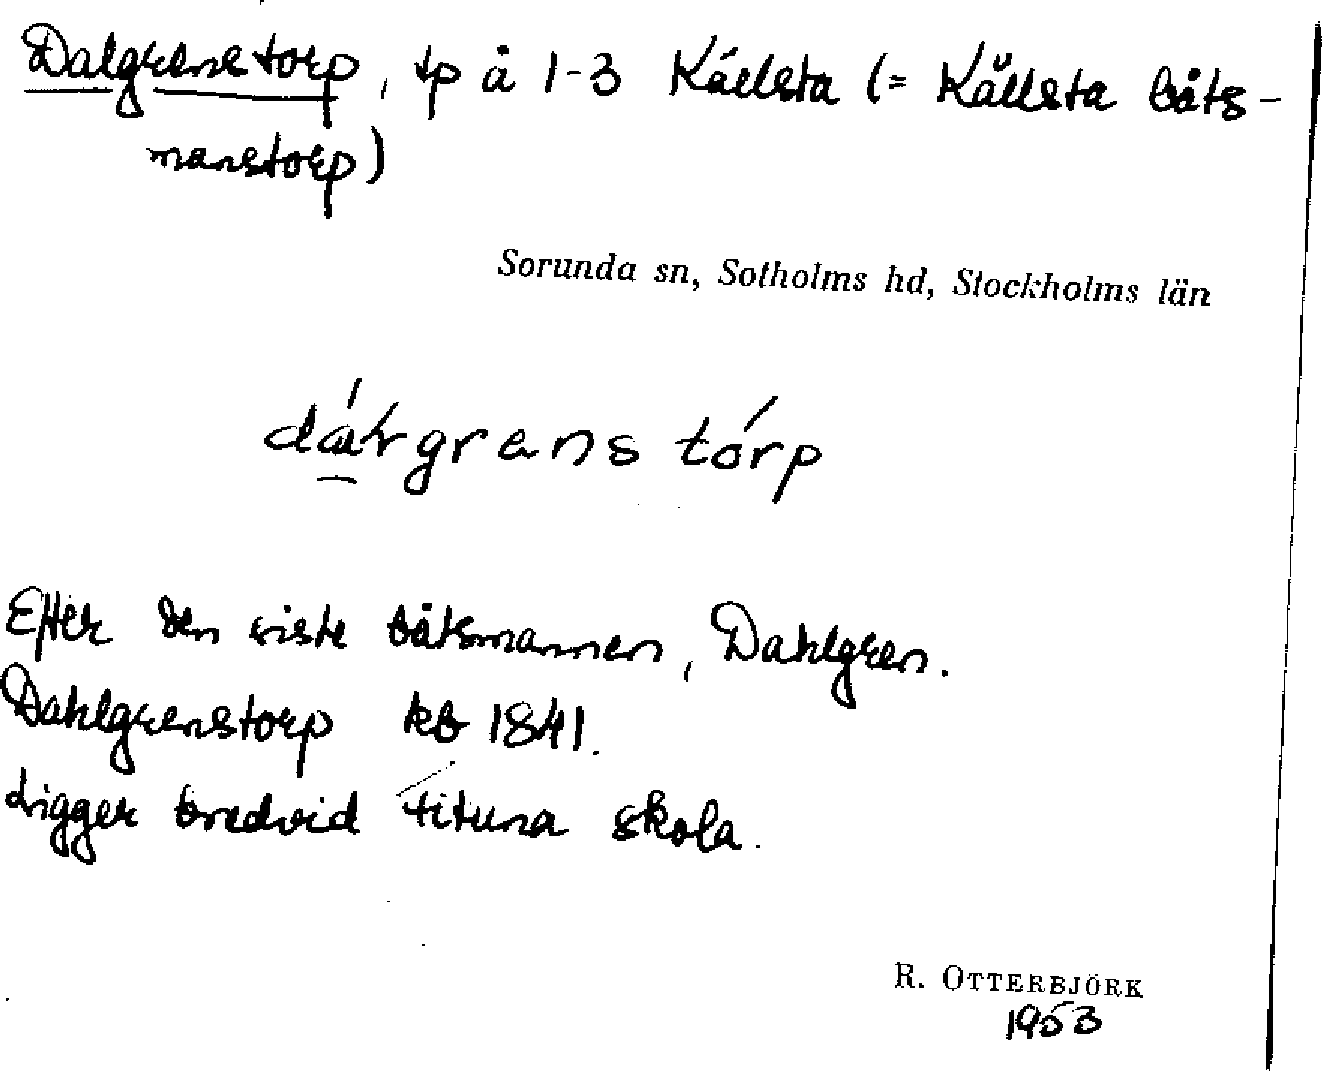 Dalgrenstorp, tp å 1-3 Källsta (= Källsta båts-
manstorp)
Sorunda sn, Sotholms hd, Stockholms län
dárgrens tórp
Efter den siste båtsmannen, Dahlgren.
Dahlgrenstorp kb 1841.
Ligger bredvid Fituna skola.
R. OTTERBJÖRK
1953